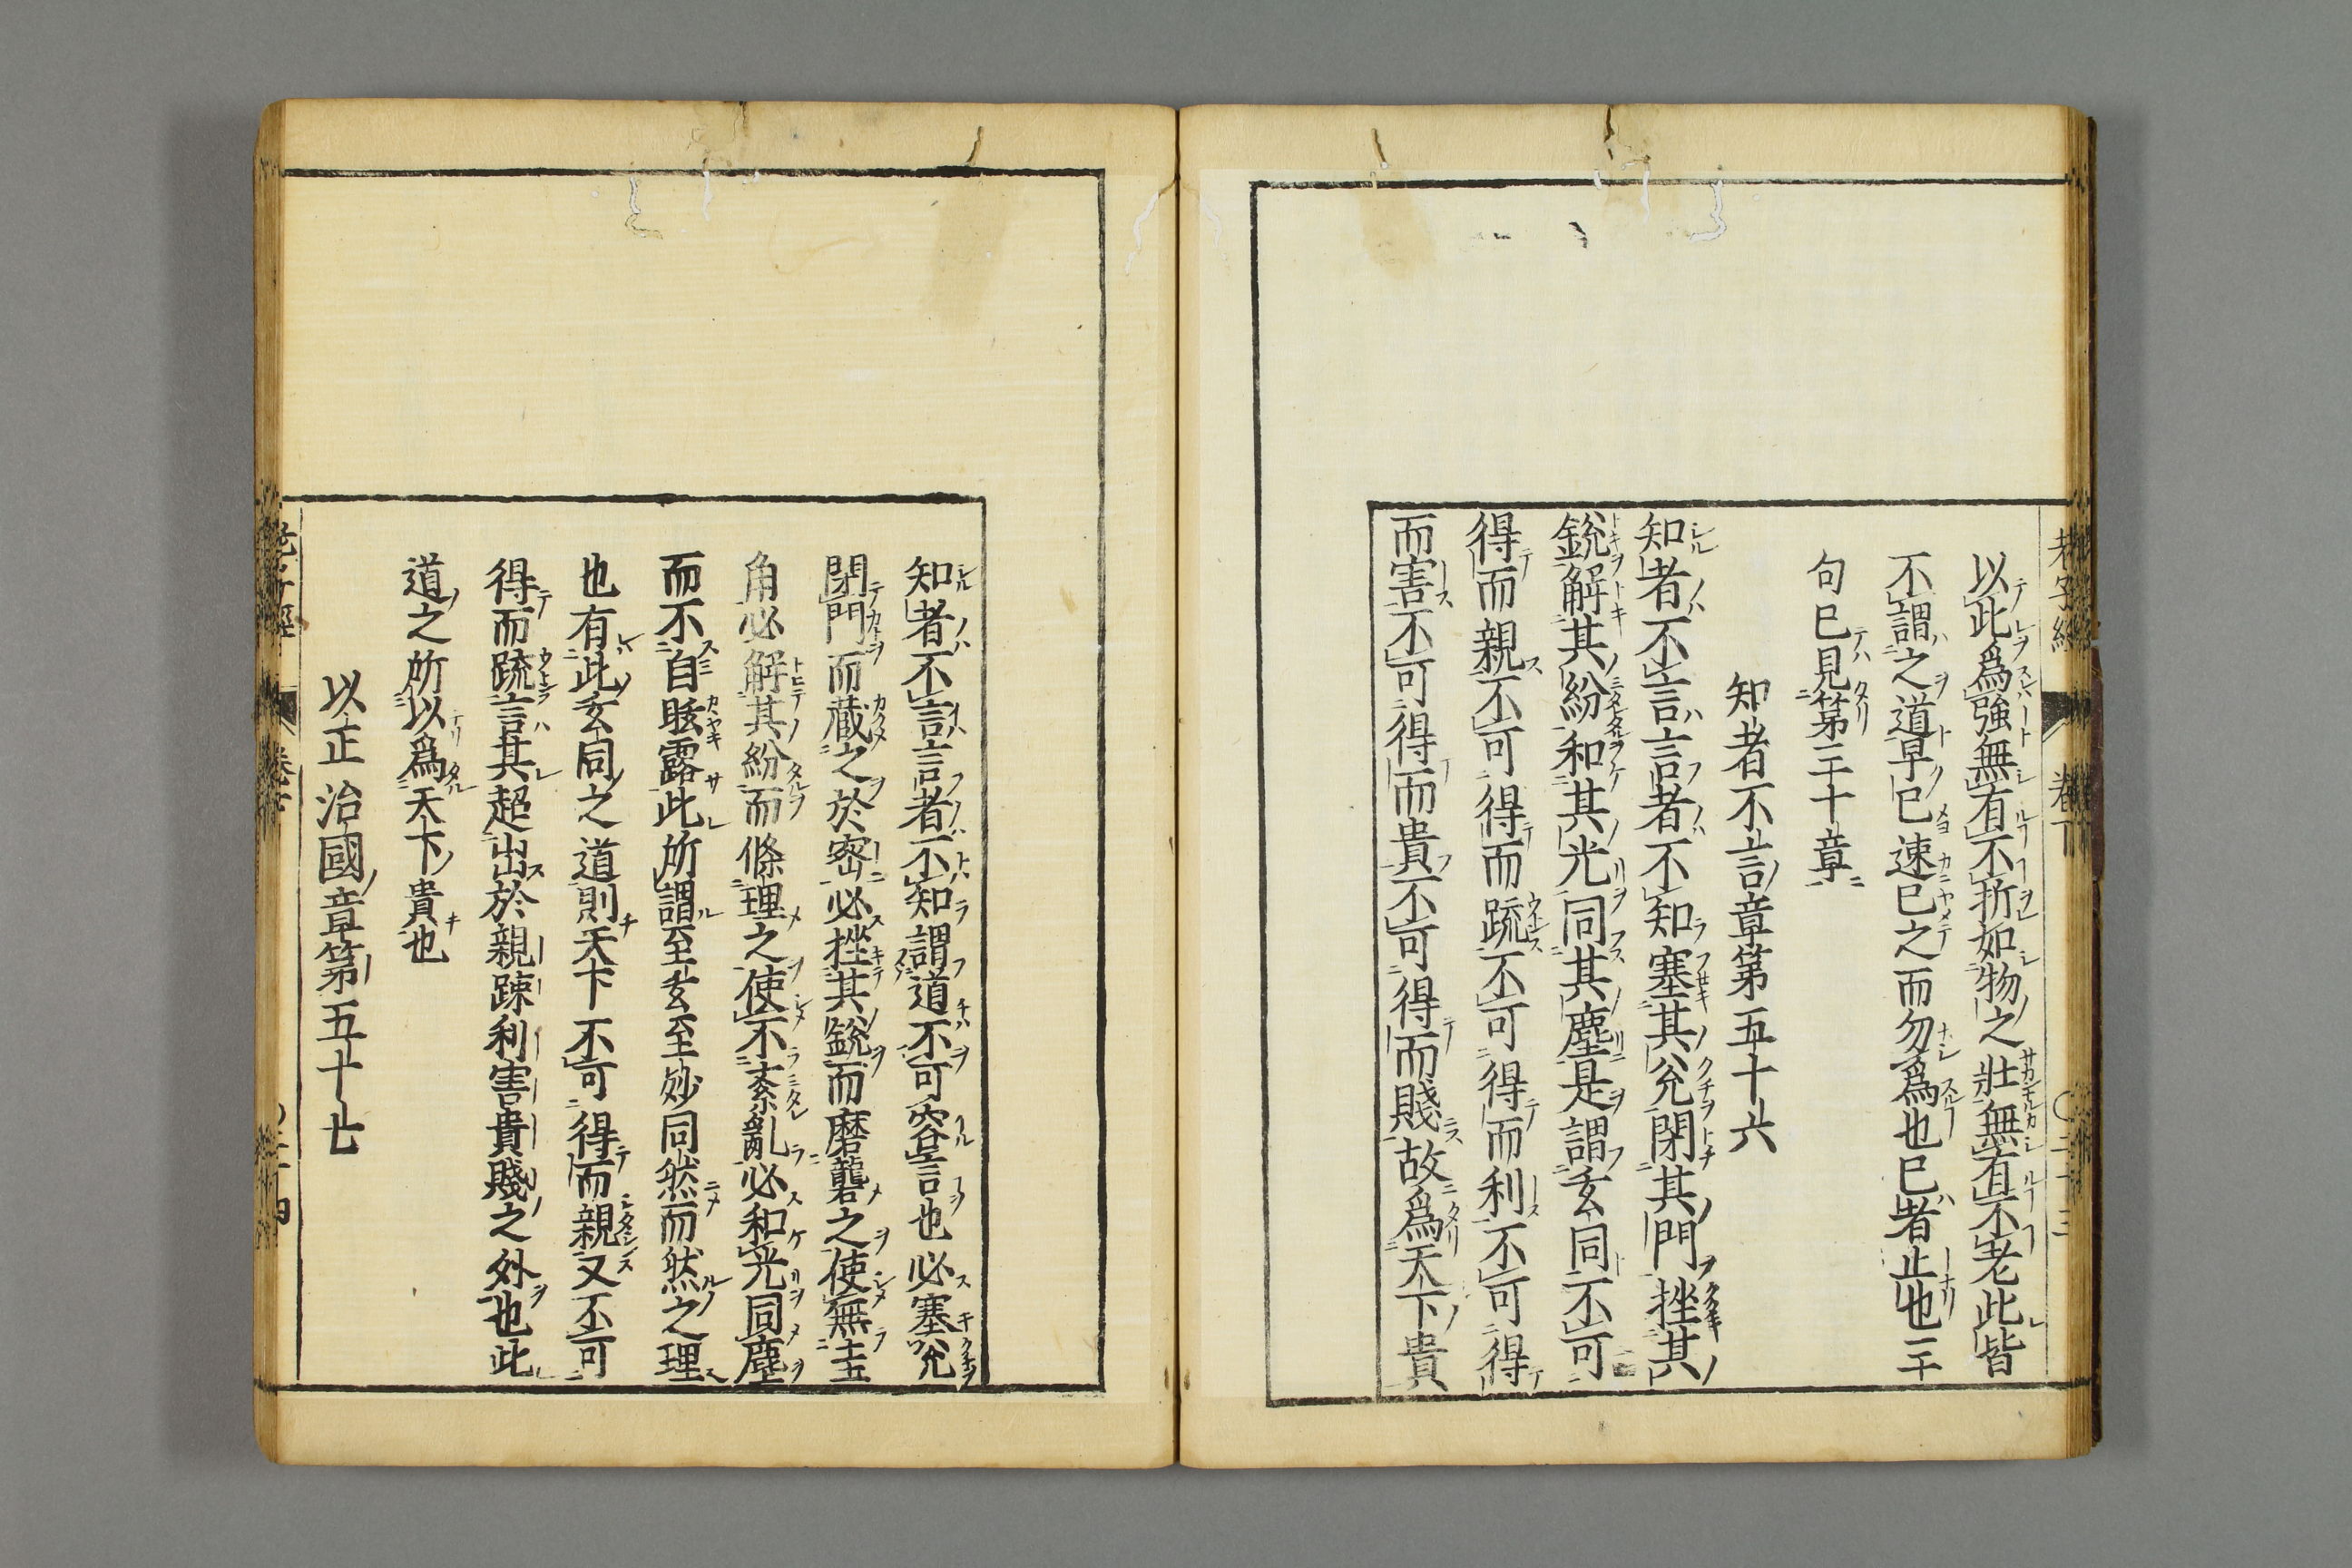 以此爲強無有不折如物之壯無有不老此皆
不謂之道早已速已之而勿爲也已者止也三
句已見第三十章
知者不言章第五十六
知者不言言者不知塞其兊閉其門挫其
銳解其紛和其光同其塵是謂玄同不可
得而親不可得而疏不可得而利不可得
而害不可得而貴不可得而賤故爲天下貴
知者不言言者不知謂道不可容言也必塞兊
閉門而藏之於密必挫其銳而磨礱之使無圭
角必解其紛而條理之使不紊亂必和光同塵
而不自眩露此所謂至玄至妙同然而然之理
也有此玄同之道則天下不可得而親又不可
得而疏言其超出於親踈利害貴賤之外也此
道之所以爲天下貴也
以正治國章第五十七